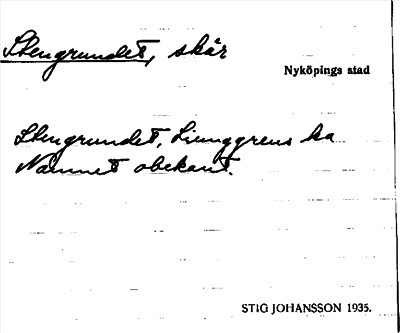 Stengrundet, skär
Nyköpings stad
Stengrundet, Ljunggrens ka
Namnet obekant.
STIG JOHANSSON 1935.